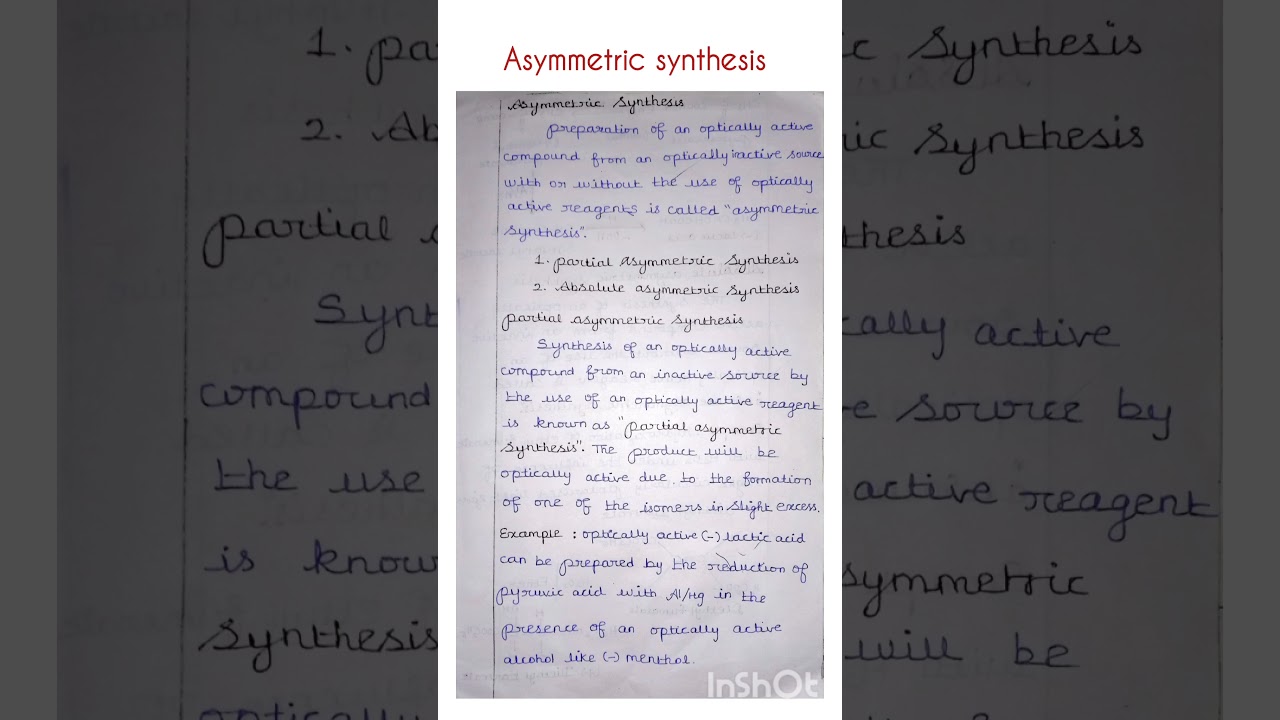 Asymmetric synthesis
Asymmetric Synthesis
preparation of an optically active
compound from an optically inactive source
with or without the use of optically
active reagents is called "asymmetric
Synthesis".
1. partial Asymmetric Synthesis
2. Absolute asymmetric Synthesis
partial asymmetric Synthesis
Synthesis of an optically active
compound from an inactive source by
the use of an optically active reagent
is known as "partial asymmetric
Synthesis". The product will be
optically active due to the formation
of one of the isomers in slight excess.
Example : optically active (-) lactic acid
can be prepared by the reduction of
pyruvic acid with Al/Hg in the
presence of an optically active
alcohol like (-) menthol.
InShOt
1. pa
2. Ab
partial
Synt
compound
the use
is know
Synthesis
optically
c Synthesis
ic Synthesis
thesis
cally active
e source by
active reagent
symmetric
will be